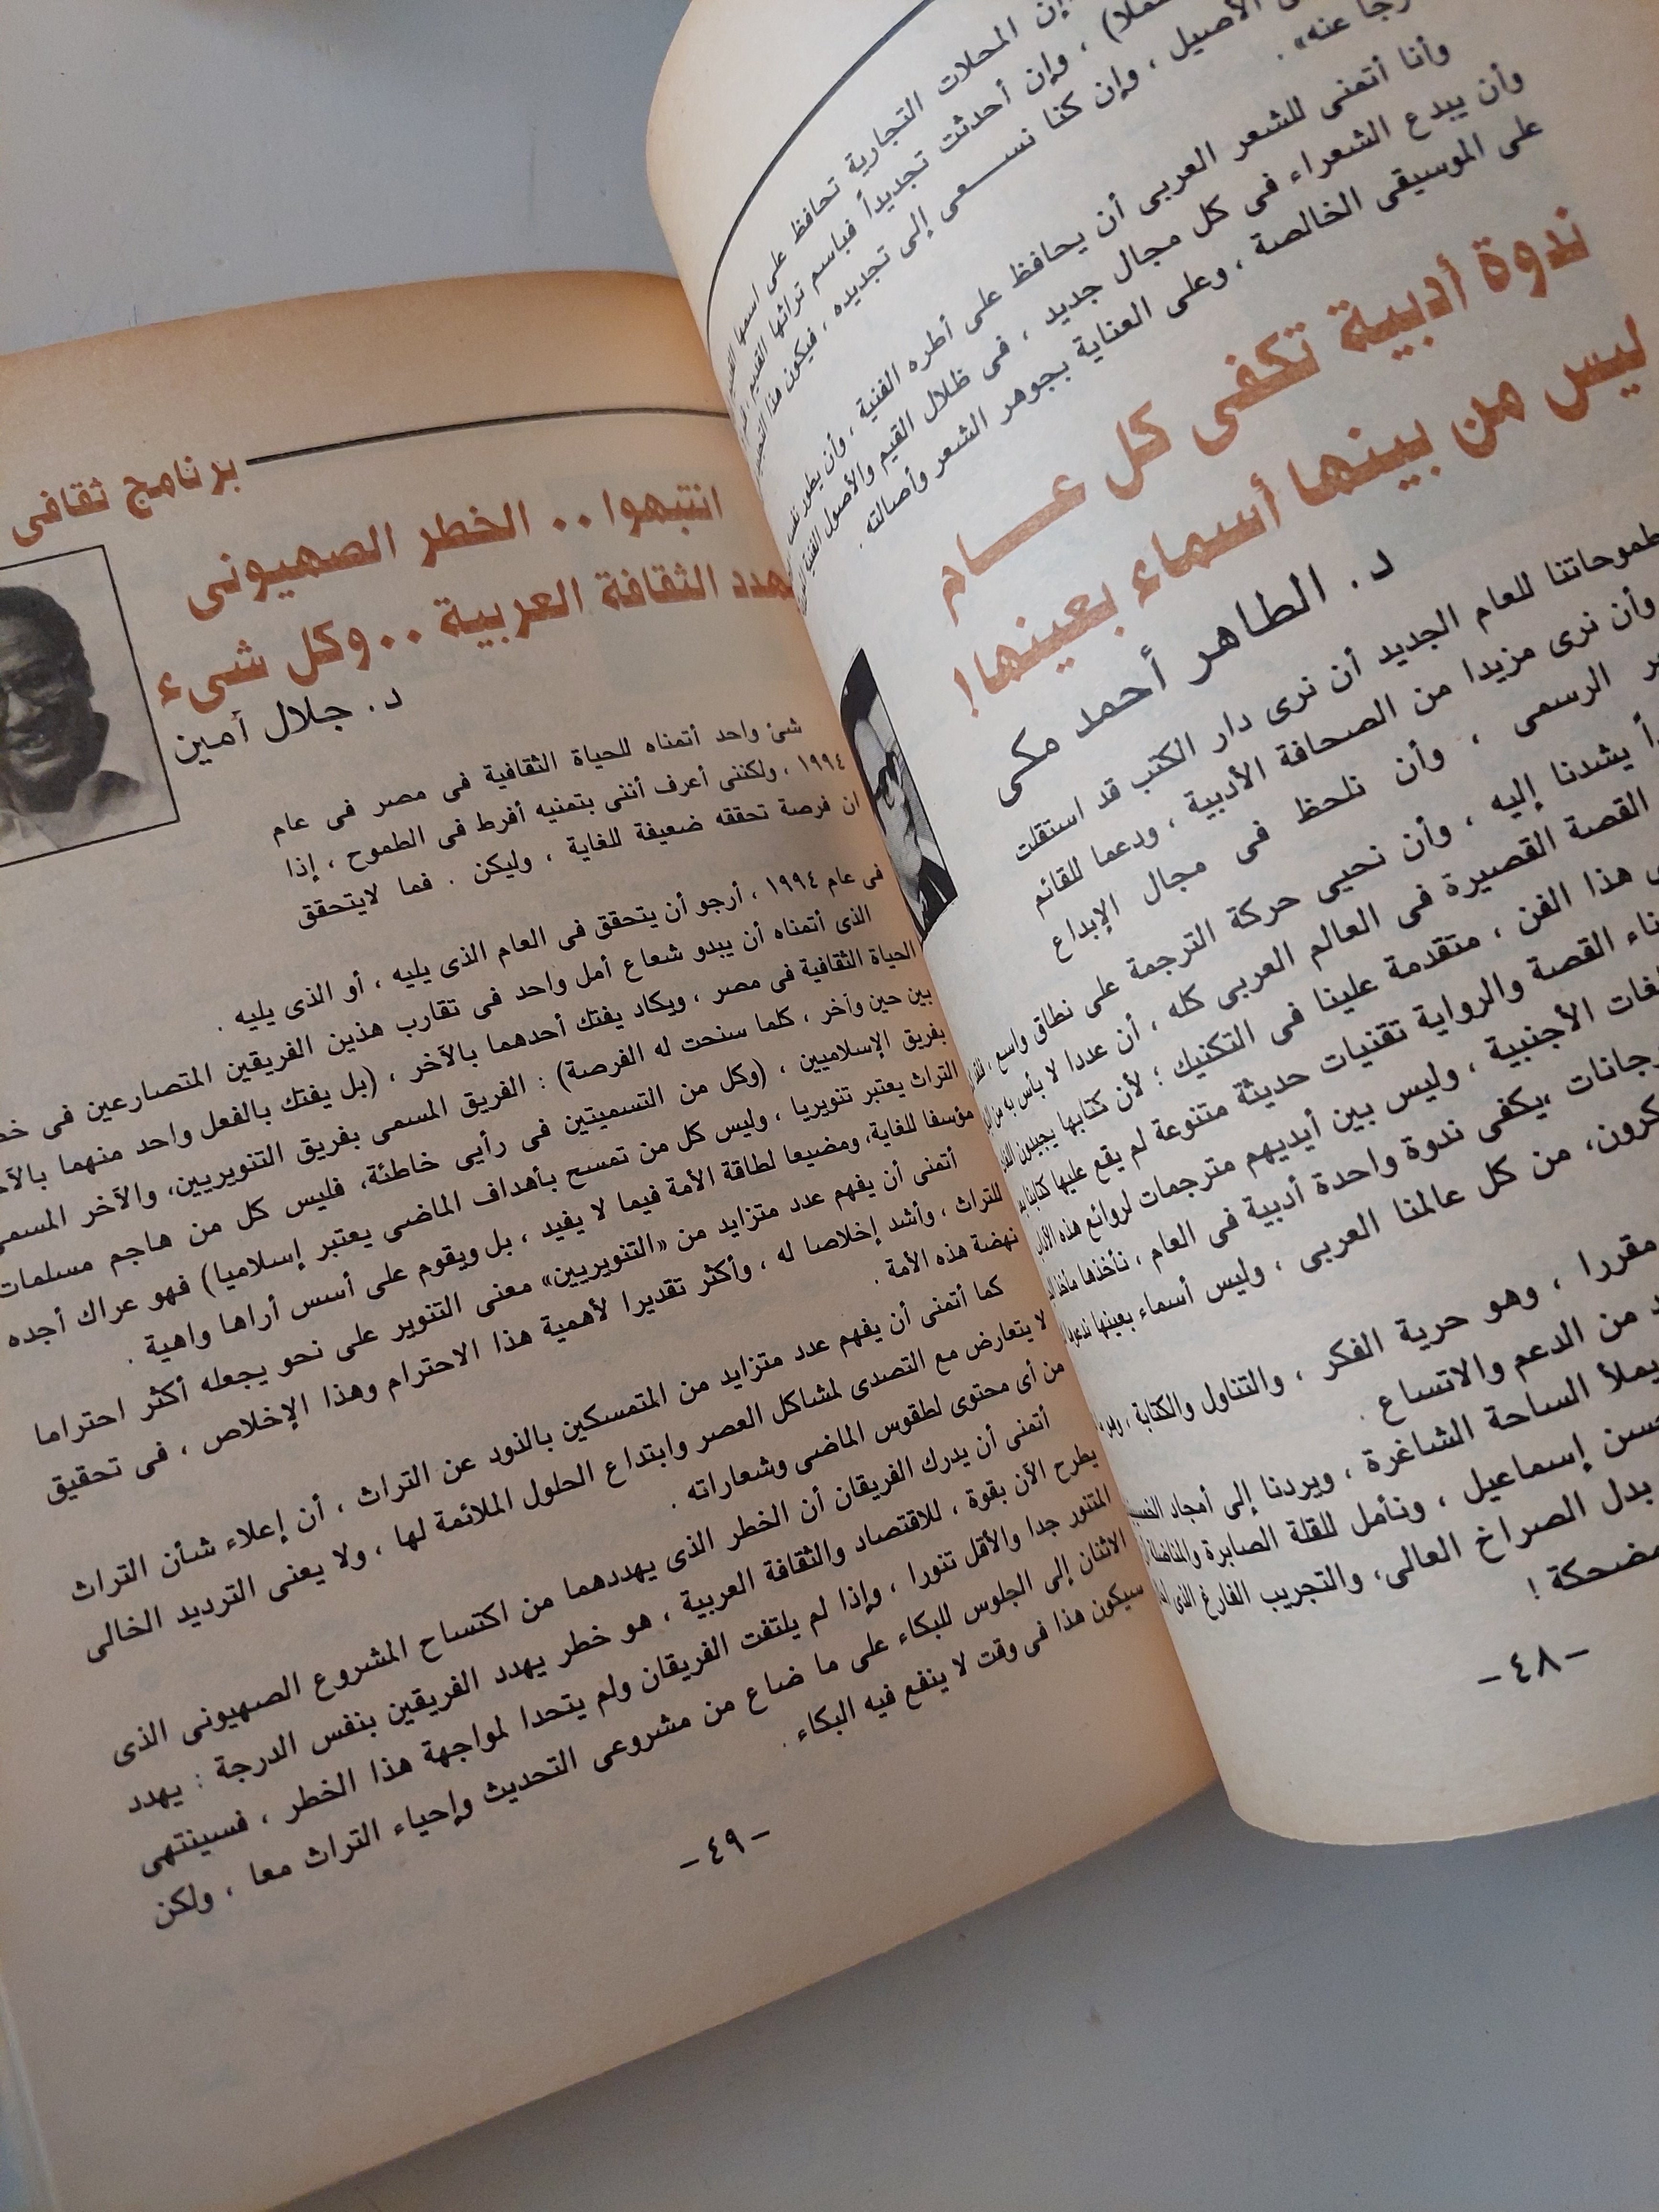 إن المحلات التجارية تحافظ على اسمها
، وإن أحدثت تجديداً فباسم تراثها القديم
الأصيل ، وإن كنا نسعى إلى تجديده ، فيكون هذا
عنه» .
وأنا أتمنى للشعر العربى أن يحافظ على أطره الفنية ، وأن يطور نفسه
وأن يبدع الشعراء فى كل مجال جديد ، فى ظلال القيم والأصول الفنية
على الموسيقى الخالصة ، وعلى العناية بجوهر الشعر وأصالته .
ندوة أدبية تكفى كل عام
ليس من بينها أسماء بعينها!
د. الطاهر أحمد مكى
طموحاتنا للعام الجديد أن نرى دار الكتب قد استقلت
وأن نرى مزيدا من الصحافة الأدبية ، ودعما للقائم
الرسمى ، وأن نلحظ فى مجال الإبداع
يشدنا إليه ، وأن نحيى حركة الترجمة على نطاق واسع ،
القصة القصيرة فى العالم العربى كله ، أن عددا لا بأس به من
هذا الفن ، متقدمة علينا فى التكنيك ؛ لأن كتابها يجيدون
القصة والرواية تقنيات حديثة متنوعة لم يقع عليها كتابنا
الأجنبية ، وليس بين أيديهم مترجمات لروائع هذه
يكفى ندوة واحدة أدبية فى العام ، نأخذها
من كل عالمنا العربى ، وليس أسماء بعينها
مقررا ، وهو حرية الفكر ، والتناول والكتابة ،
من الدعم والاتساع .
يملأ الساحة الشاغرة ، ويردنا إلى أمجاد
إسماعيل ، ونأمل للقلة الصابرة والمناضلة
بدل الصراخ العالى، والتجريب الفارغ الذى
مضحكة !
-٤٨-
برنامج ثقافى
انتبهوا .. الخطر الصهيونى
يهدد الثقافة العربية ..وكل شىء
د. جلال أمين
شئ واحد أتمناه للحياة الثقافية فى مصر فى عام
١٩٩٤ ، ولكننى أعرف أننى بتمنيه أفرط فى الطموح ، إذا
ان فرصة تحققه ضعيفة للغاية ، وليكن . فما لايتحقق
فى عام ١٩٩٤ ، أرجو أن يتحقق فى العام الذى يليه ، أو الذى يليه .
الذى أتمناه أن يبدو شعاع أمل واحد فى تقارب هذين الفريقين المتصارعين فى
الحياة الثقافية فى مصر ، ويكاد يفتك أحدهما بالآخر ، (بل يفتك بالفعل واحد منهما
بين حين وآخر ، كلما سنحت له الفرصة) : الفريق المسمى بفريق التنويريين، والآخر المسمى
بفريق الإسلاميين ، (وكل من التسميتين فى رأيى خاطئة، فليس كل من هاجم مسلمات
التراث يعتبر تنويريا ، وليس كل من تمسح بأهداف الماضى يعتبر إسلاميا) فهو عراك أجده
مؤسفا للغاية، ومضيعا لطاقة الأمة فيما لا يفيد ، بل ويقوم على أسس أراها واهية .
أتمنى أن يفهم عدد متزايد من «التنويريين» معنى التنوير على نحو يجعله أكثر احتراما
للتراث ، وأشد إخلاصا له ، وأكثر تقديرا لأهمية هذا الاحترام وهذا الإخلاص ، فى تحقيق
نهضة هذه الأمة .
كما أتمنى أن يفهم عدد متزايد من المتمسكين بالذود عن التراث ، أن إعلاء شأن التراث
لا يتعارض مع التصدى لمشاكل العصر وابتداع الحلول الملائمة لها ، ولا يعنى الترديد الخالى
من أى محتوى لطقوس الماضى وشعاراته .
أتمنى أن يدرك الفريقان أن الخطر الذى يهددهما من اكتساح المشروع الصهيونى الذى
يطرح الآن بقوة ، للاقتصاد والثقافة العربية ، هو خطر يهدد الفريقين بنفس الدرجة : يهدد
المتنور جدا والأقل تنورا ، وإذا لم يلتفت الفريقان ولم يتحدا لمواجهة هذا الخطر ، فسينتهى
الاثنان إلى الجلوس للبكاء على ما ضاع من مشروعى التحديث وإحياء التراث معا ، ولكن
سيكون هذا فى وقت لا ينفع فيه البكاء .
-٤٩-